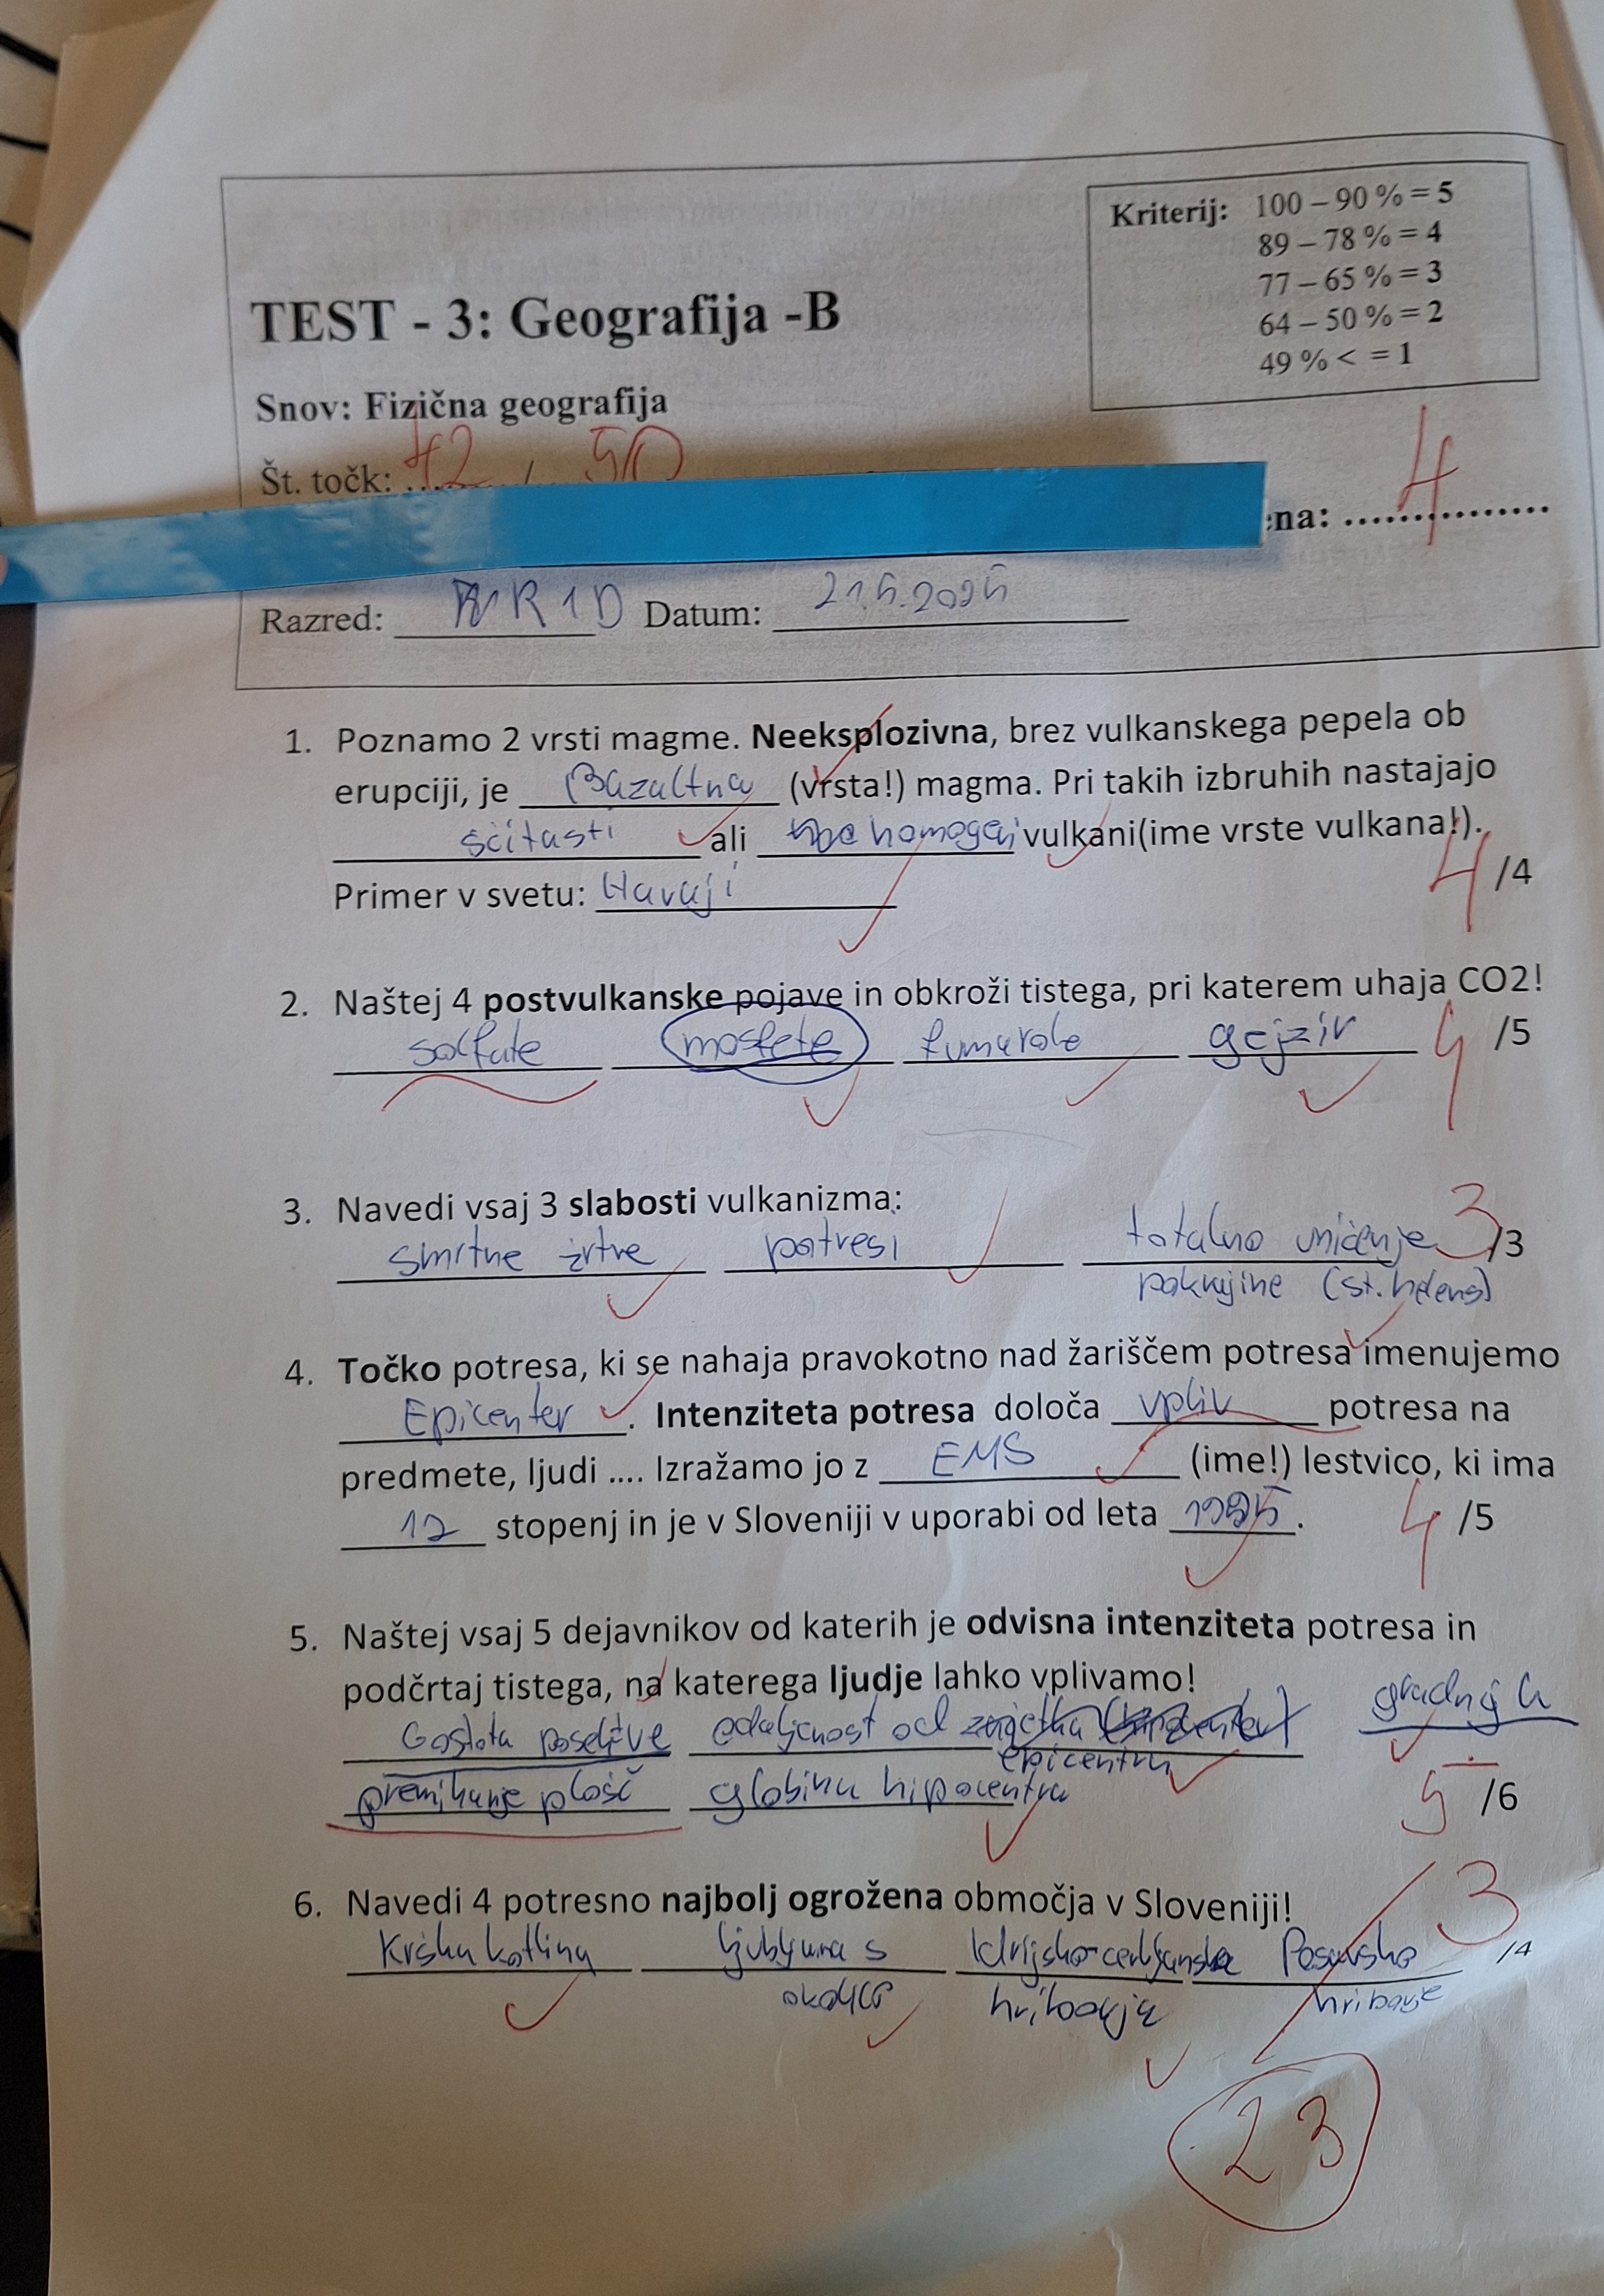 Kriterij: 100 – 90 % = 5
89 – 78 % = 4
77 – 65 % = 3
64 – 50 % = 2
49 % < = 1
TEST - 3: Geografija -B
Snov: Fizična geografija
Št. točk: 42 / 50
ena: 4
Razred: R1D Datum: 21.5.2025
1. Poznamo 2 vrsti magme. Neeksplozivna, brez vulkanskega pepela ob
erupciji, je Bazaltna (vrsta!) magma. Pri takih izbruhih nastajajo
ščitasti ali homogeni vulkani(ime vrste vulkana!).
Primer v svetu: Havaji 4 /4
2. Naštej 4 postvulkanske pojave in obkroži tistega, pri katerem uhaja CO2!
solfate mosfete fumarole gejzir 4 /5
3. Navedi vsaj 3 slabosti vulkanizma:
smrtne žrtve potresi totalno uničenje 3/3
pokrajine (st. helens)
4. Točko potresa, ki se nahaja pravokotno nad žariščem potresa imenujemo
Epicenter. Intenziteta potresa določa vpliv potresa na
predmete, ljudi .... Izražamo jo z EMS (ime!) lestvico, ki ima
12 stopenj in je v Sloveniji v uporabi od leta 1995. 4 /5
5. Naštej vsaj 5 dejavnikov od katerih je odvisna intenziteta potresa in
podčrtaj tistega, na katerega ljudje lahko vplivamo!
Gostota poselitve odaljenost od gradnja
epicentra
premikanje plošč globina hipocentra 5 /6
6. Navedi 4 potresno najbolj ogrožena območja v Sloveniji! 3
Krška kotlina ljubljana s Idrijsko-cerkljansko Posavsko /4
okolico hribovje hribovje
23